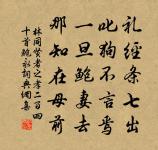 礼经条七出
叱狗不言焉
一旦鲍妻去
那知在母前
林同贤者之孝二百四
十首鲍永词典图集